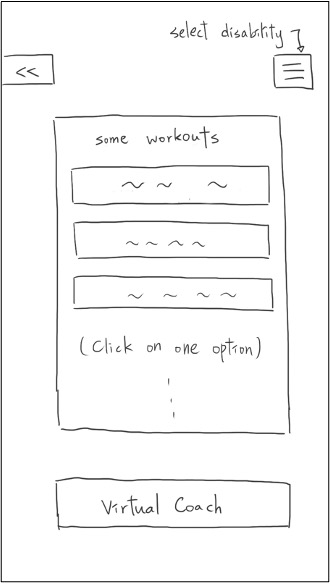 select disability
<<
some workouts
(Click on one option)
Virtual Coach